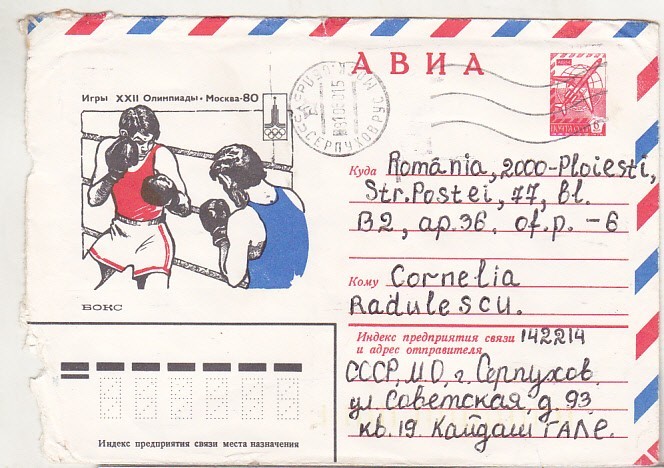 АВИА
Игры XXII Олимпиады • Москва-80
БОКС
СЕРПУХОВ
ПОЧТА СССР
6
Куда România, 2000-Ploiesti,
Str. Postei, 77, bl.
B2, ap. 36, of. p. - 6
Кому Cornelia
Radulescu.
Индекс предприятия связи 142214
и адрес отправителя
СССР, М.О, г. Серпухов
ул Советская, д. 93
кв. 19. Кайдаш
Индекс предприятия связи места назначения